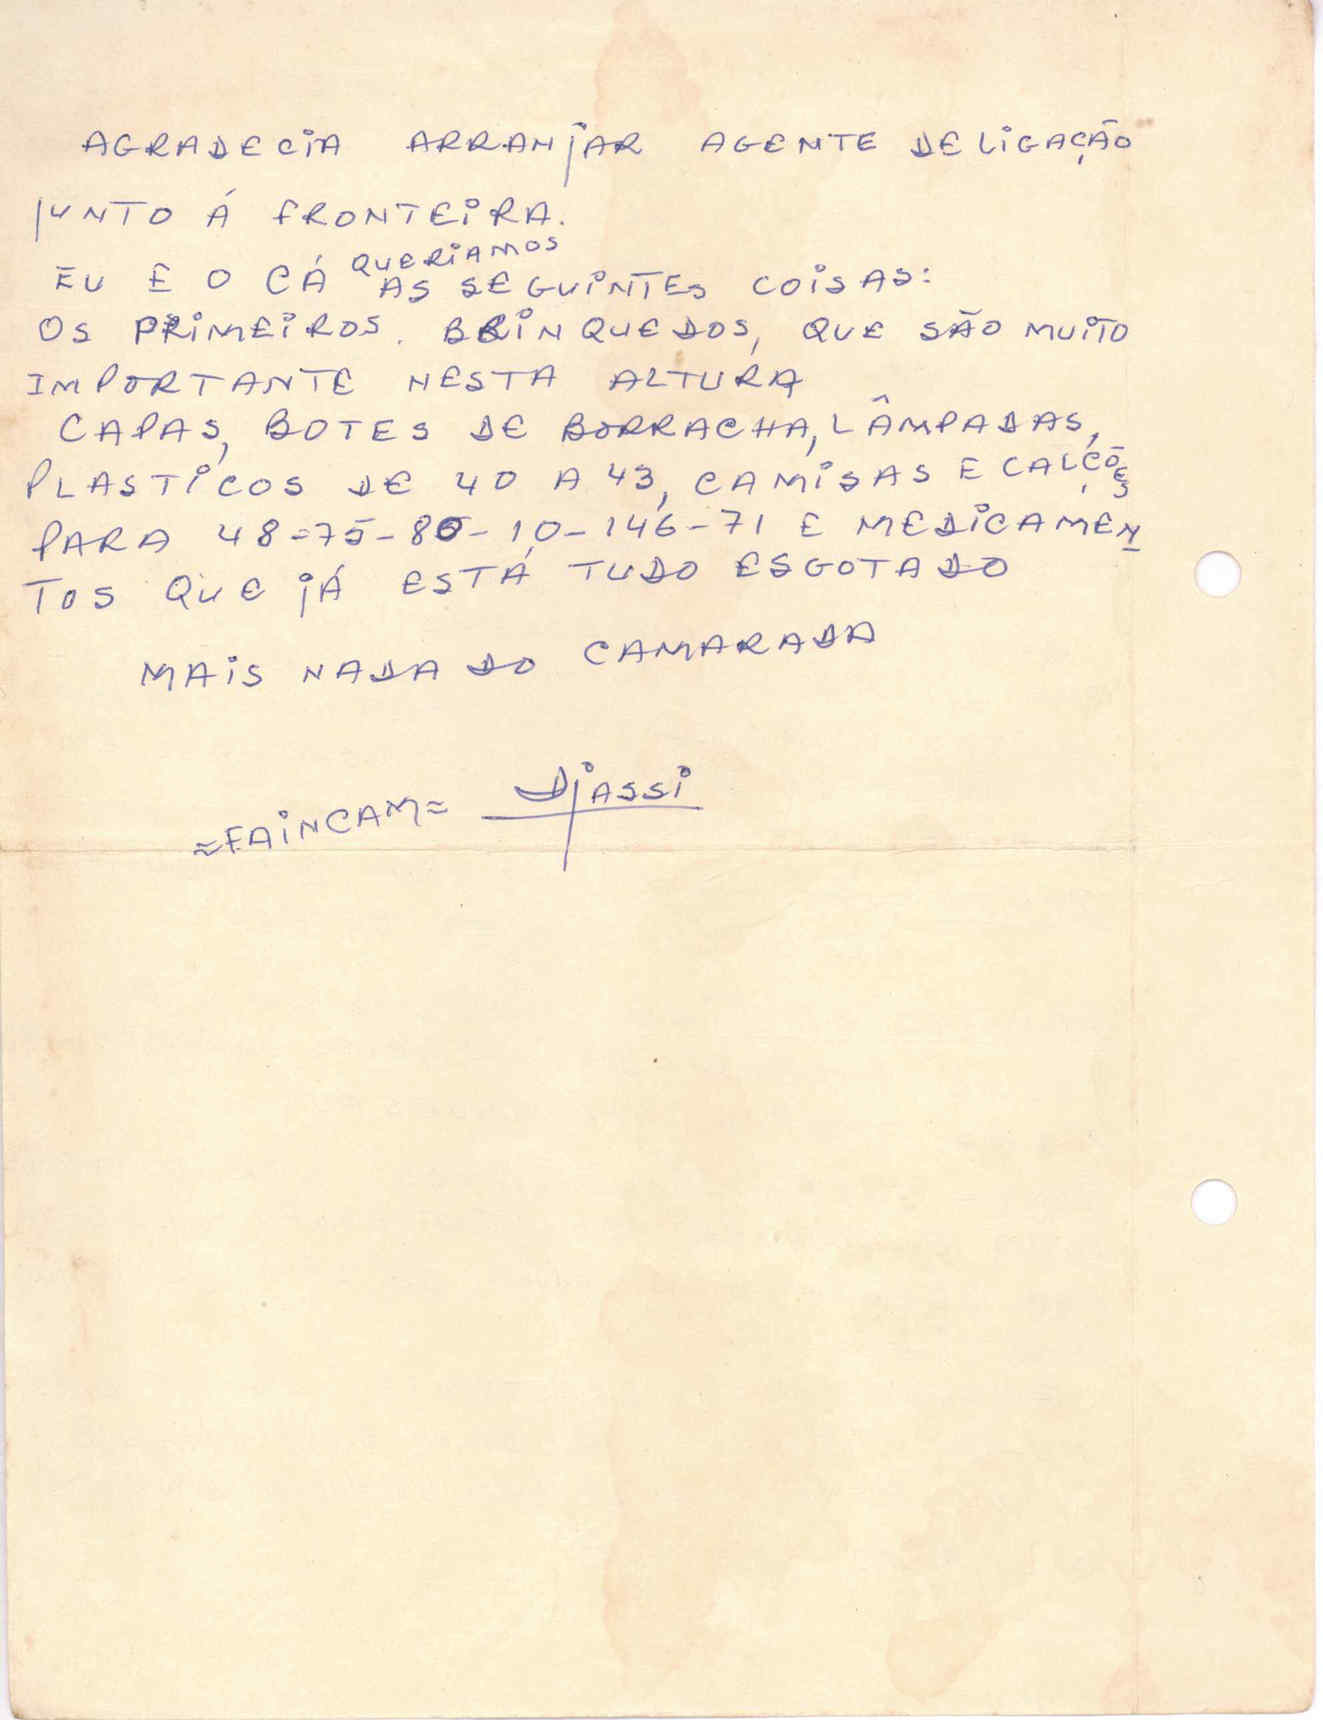 AGRADECIA ARRANJAR AGENTE DE LIGAÇÃO
JUNTO Á FRONTEIRA.
EU E O CÁ QUERIAMOS AS SEGUINTES COISAS:
OS PRIMEIROS. BRINQUEDOS, QUE SÃO MUITO
IMPORTANTE NESTA ALTURA
CAPAS, BOTES DE BORRACHA, LÂMPADAS,
PLASTICOS DE 40 A 43, CAMISAS E CALÇÕES
PARA 48=75-86-10-146-71 E MEDICAMEN
TOS QUE JÁ ESTÁ TUDO ESGOTADO
MAIS NADA DO CAMARADA
≈FAINCAM≈ Djassi